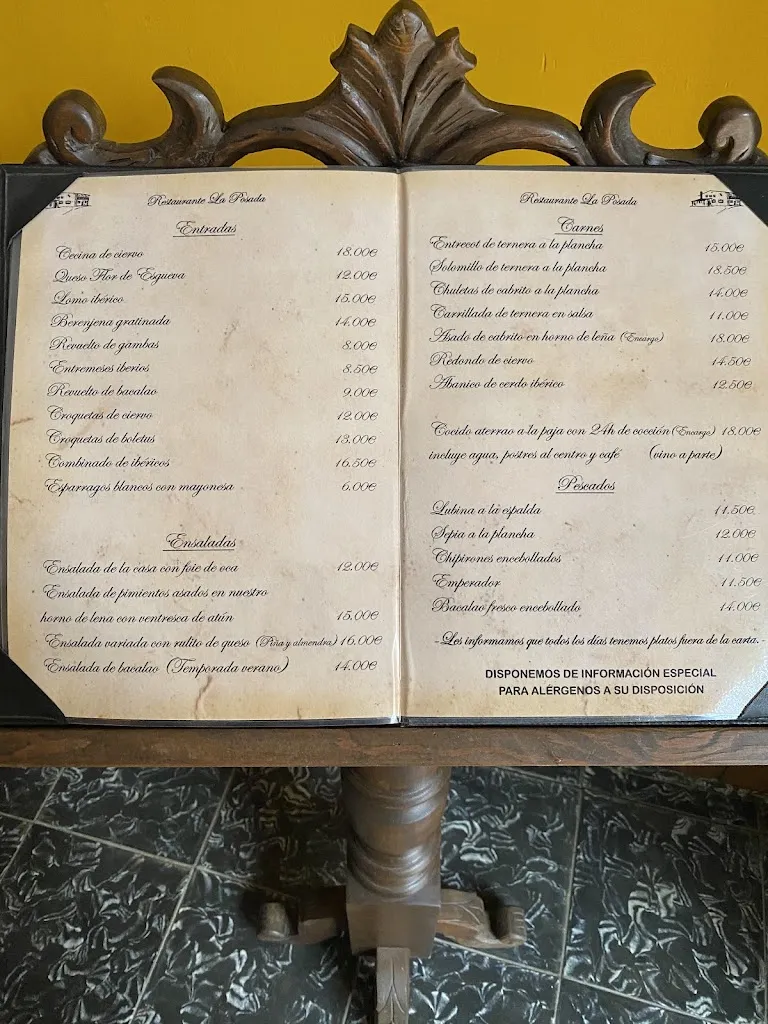 Restaurante La Posada
Entradas
Cecina de ciervo 18.00€
Queso Flor de Esgueva 12.00€
Lomo ibérico 15.00€
Berenjena gratinada 14.00€
Revuelto de gambas 8.00€
Entremeses iberios 8.50€
Revuelto de bacalao 9.00€
Croquetas de ciervo 12.00€
Croquetas de boletus 13.00€
Combinado de ibéricos 16.50€
Esparragos blancos con mayonesa 6.00€
Ensaladas
Ensalada de la casa con foie de oca 12.00€
Ensalada de pimientos asados en nuestro
horno de lena con ventresca de atún 15.00€
Ensalada variada con rulito de queso (Piña y almendra) 16.00€
Ensalada de bacalao (Temporada verano) 14.00€
Restaurante La Posada
Carnes
Entrecot de ternera a la plancha 15.00€
Solomillo de ternera a la plancha 18.50€
Chuletas de cabrito a la plancha 14.00€
Carrillada de ternera en salsa 11.00€
Asado de cabrito en horno de leña (Encargo) 18.00€
Redondo de ciervo 14.50€
Abanico de cerdo ibérico 12.50€
Cocido aterrao a la paja con 24h de cocción (Encargo) 18.00€
incluye agua, postres al centro y café (vino a parte)
Pescados
Lubina a la espalda 11.50€
Sepia a la plancha 12.00€
Chipirones encebollados 11.00€
Emperador 11.50€
Bacalao fresco encebollado 14.00€
-Les informamos que todos los días tenemos platos fuera de la carta.-
DISPONEMOS DE INFORMACIÓN ESPECIAL
PARA ALÉRGENOS A SU DISPOSICIÓN